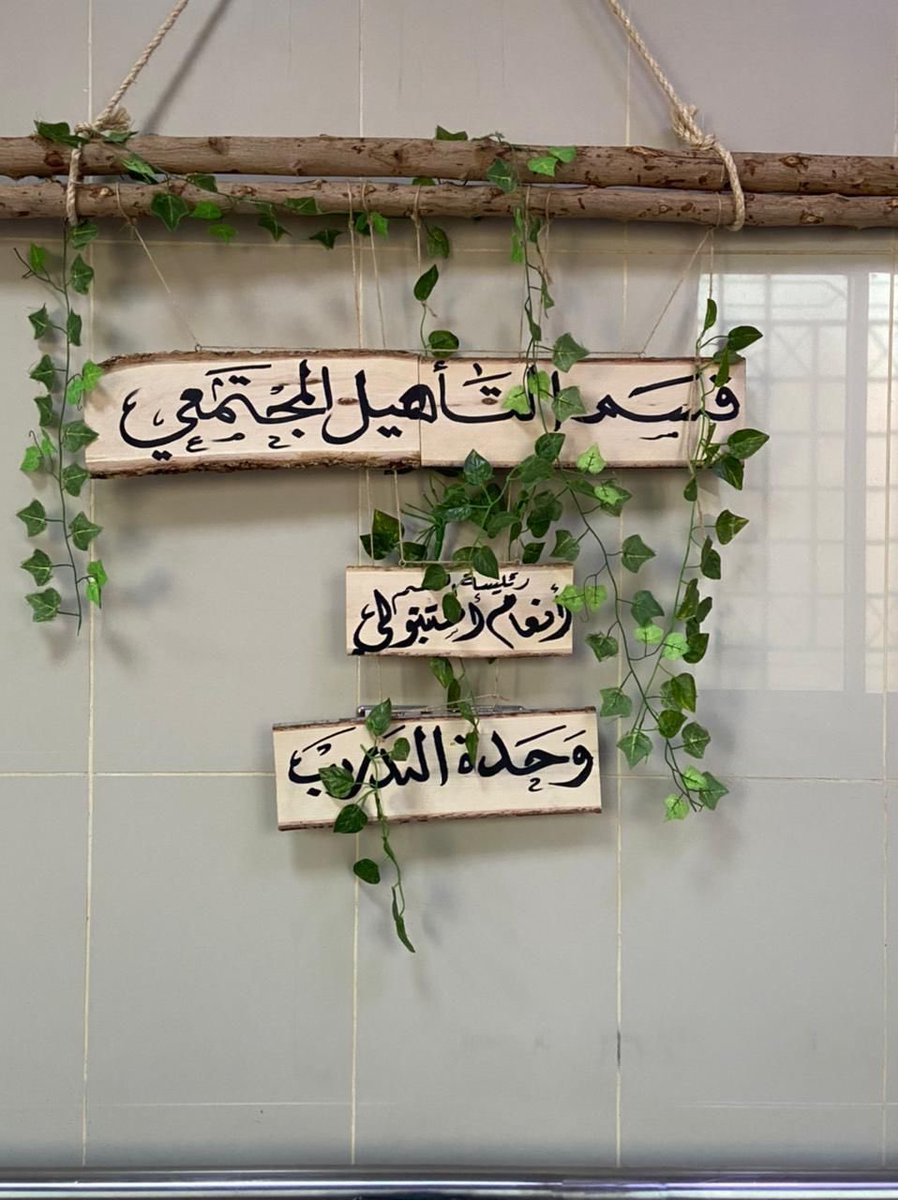 قسم التأهيل المجتمعي
رئيسة قسم
أنعام أستنبولي
وحدة التدريب